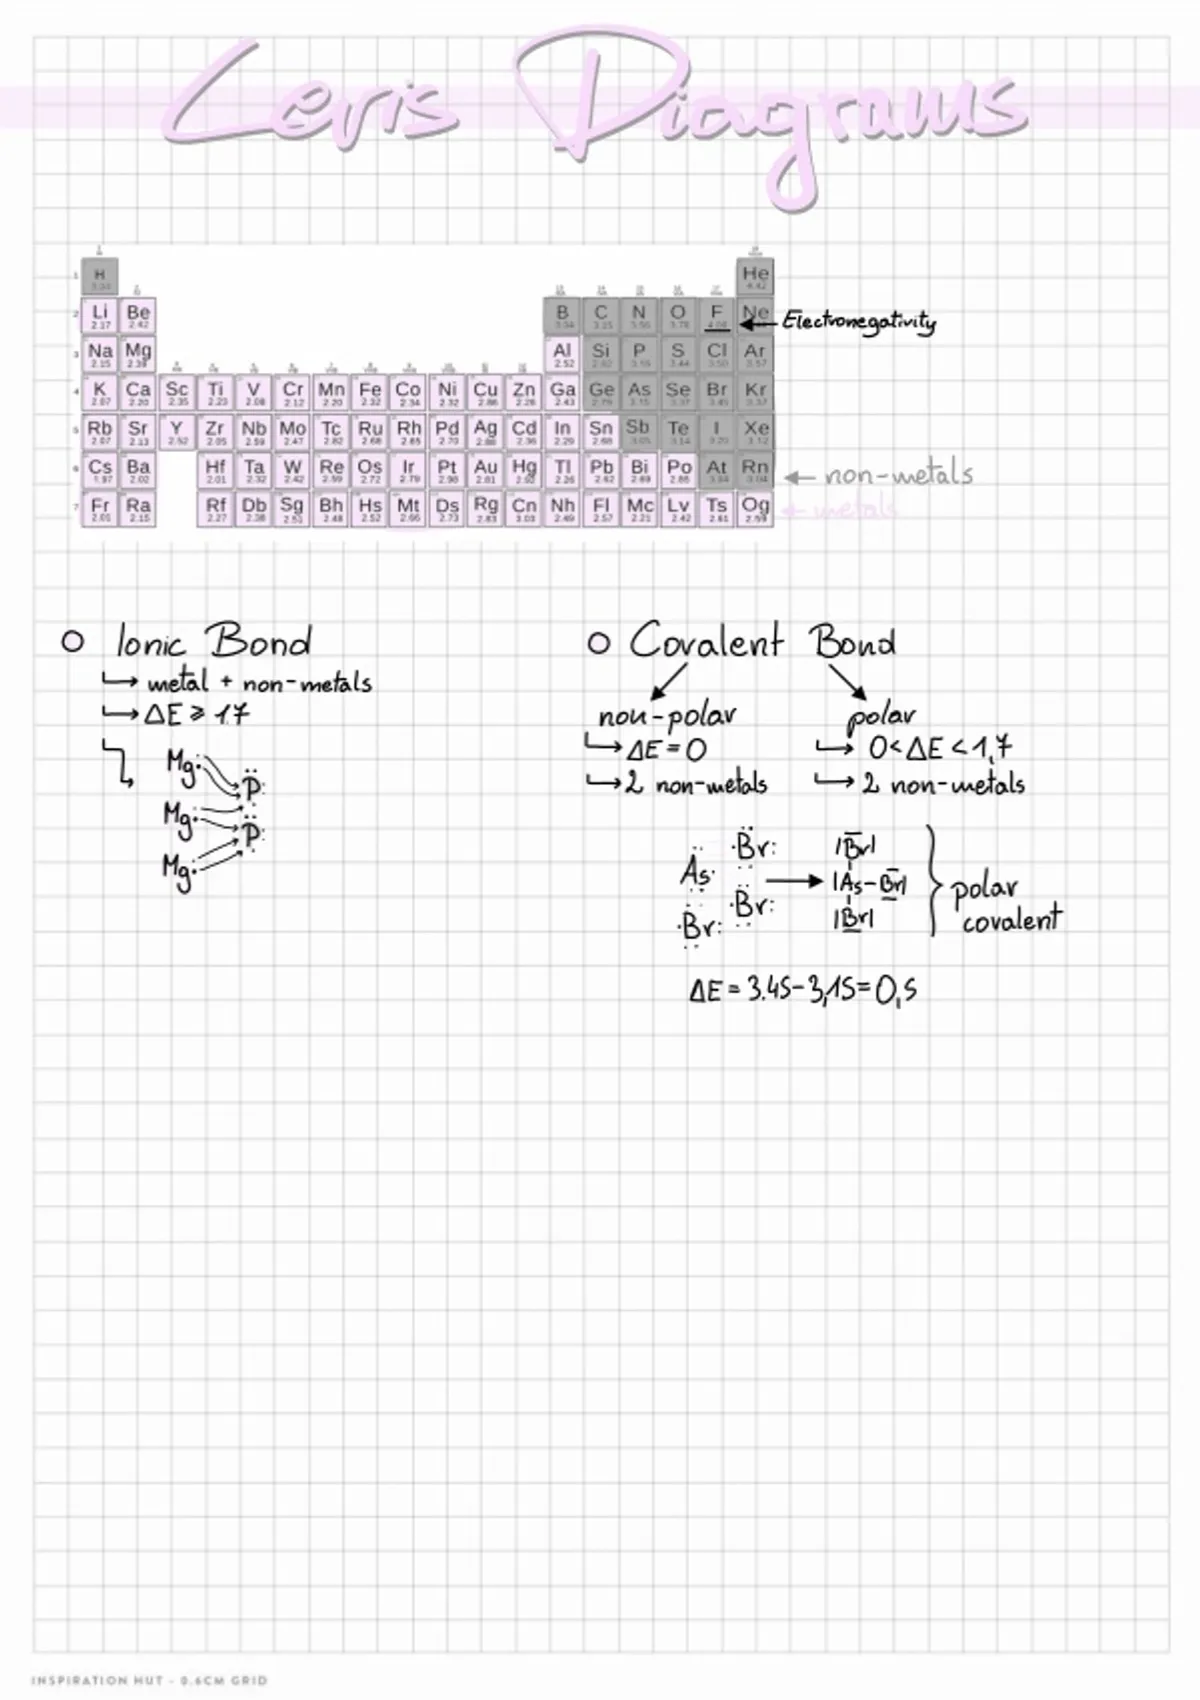 Lewis Diagrams
H He
Li 2.17 Be 2.42 B C N O F Ne
Electronegativity
Na 2.15 Mg Al 2.52 Si P S 3.44 Cl Ar
K 2.07 Ca 2.20 Sc 2.35 Ti 2.23 V 2.08 Cr 2.12 Mn 2.20 Fe 2.32 Co 2.34 Ni 2.32 Cu 2.86 Zn 2.26 Ga 2.43 Ge As Se Br Kr
Rb 2.07 Sr 2.13 Y 2.52 Zr 2.05 Nb 2.59 Mo 2.47 Tc 2.82 Ru 2.68 Rh 2.65 Pd 2.70 Ag Cd 2.36 In 2.29 Sn 2.68 Sb Te I Xe
Cs 1.97 Ba 2.02 Hf 2.01 Ta 2.32 W 2.42 Re 2.59 Os 2.72 Ir 2.79 Pt 2.98 Au 2.81 Hg 2.92 Tl 2.26 Pb 2.62 Bi 2.69 Po 2.85 At Rn
non-metals
Fr 2.01 Ra 2.15 Rf 2.27 Db 2.38 Sg 2.51 Bh 2.48 Hs 2.52 Mt 2.66 Ds 2.73 Rg 2.83 Cn 3.03 Nh 2.49 Fl 2.57 Mc 2.21 Lv 2.42 Ts 2.61 Og 2.59
metals
Ionic Bond
metal + non-metals
ΔE ≥ 1.7
Mg P
Mg P
Mg
Covalent Bond
non-polar
ΔE = 0
2 non-metals
polar
0 < ΔE < 1,7
2 non-metals
Br
As
Br
Br
|Br|
|As-Br|
|Br|
polar
covalent
ΔE = 3.45 - 3,15 = 0,5
INSPIRATION HUT - 0.6CM GRID